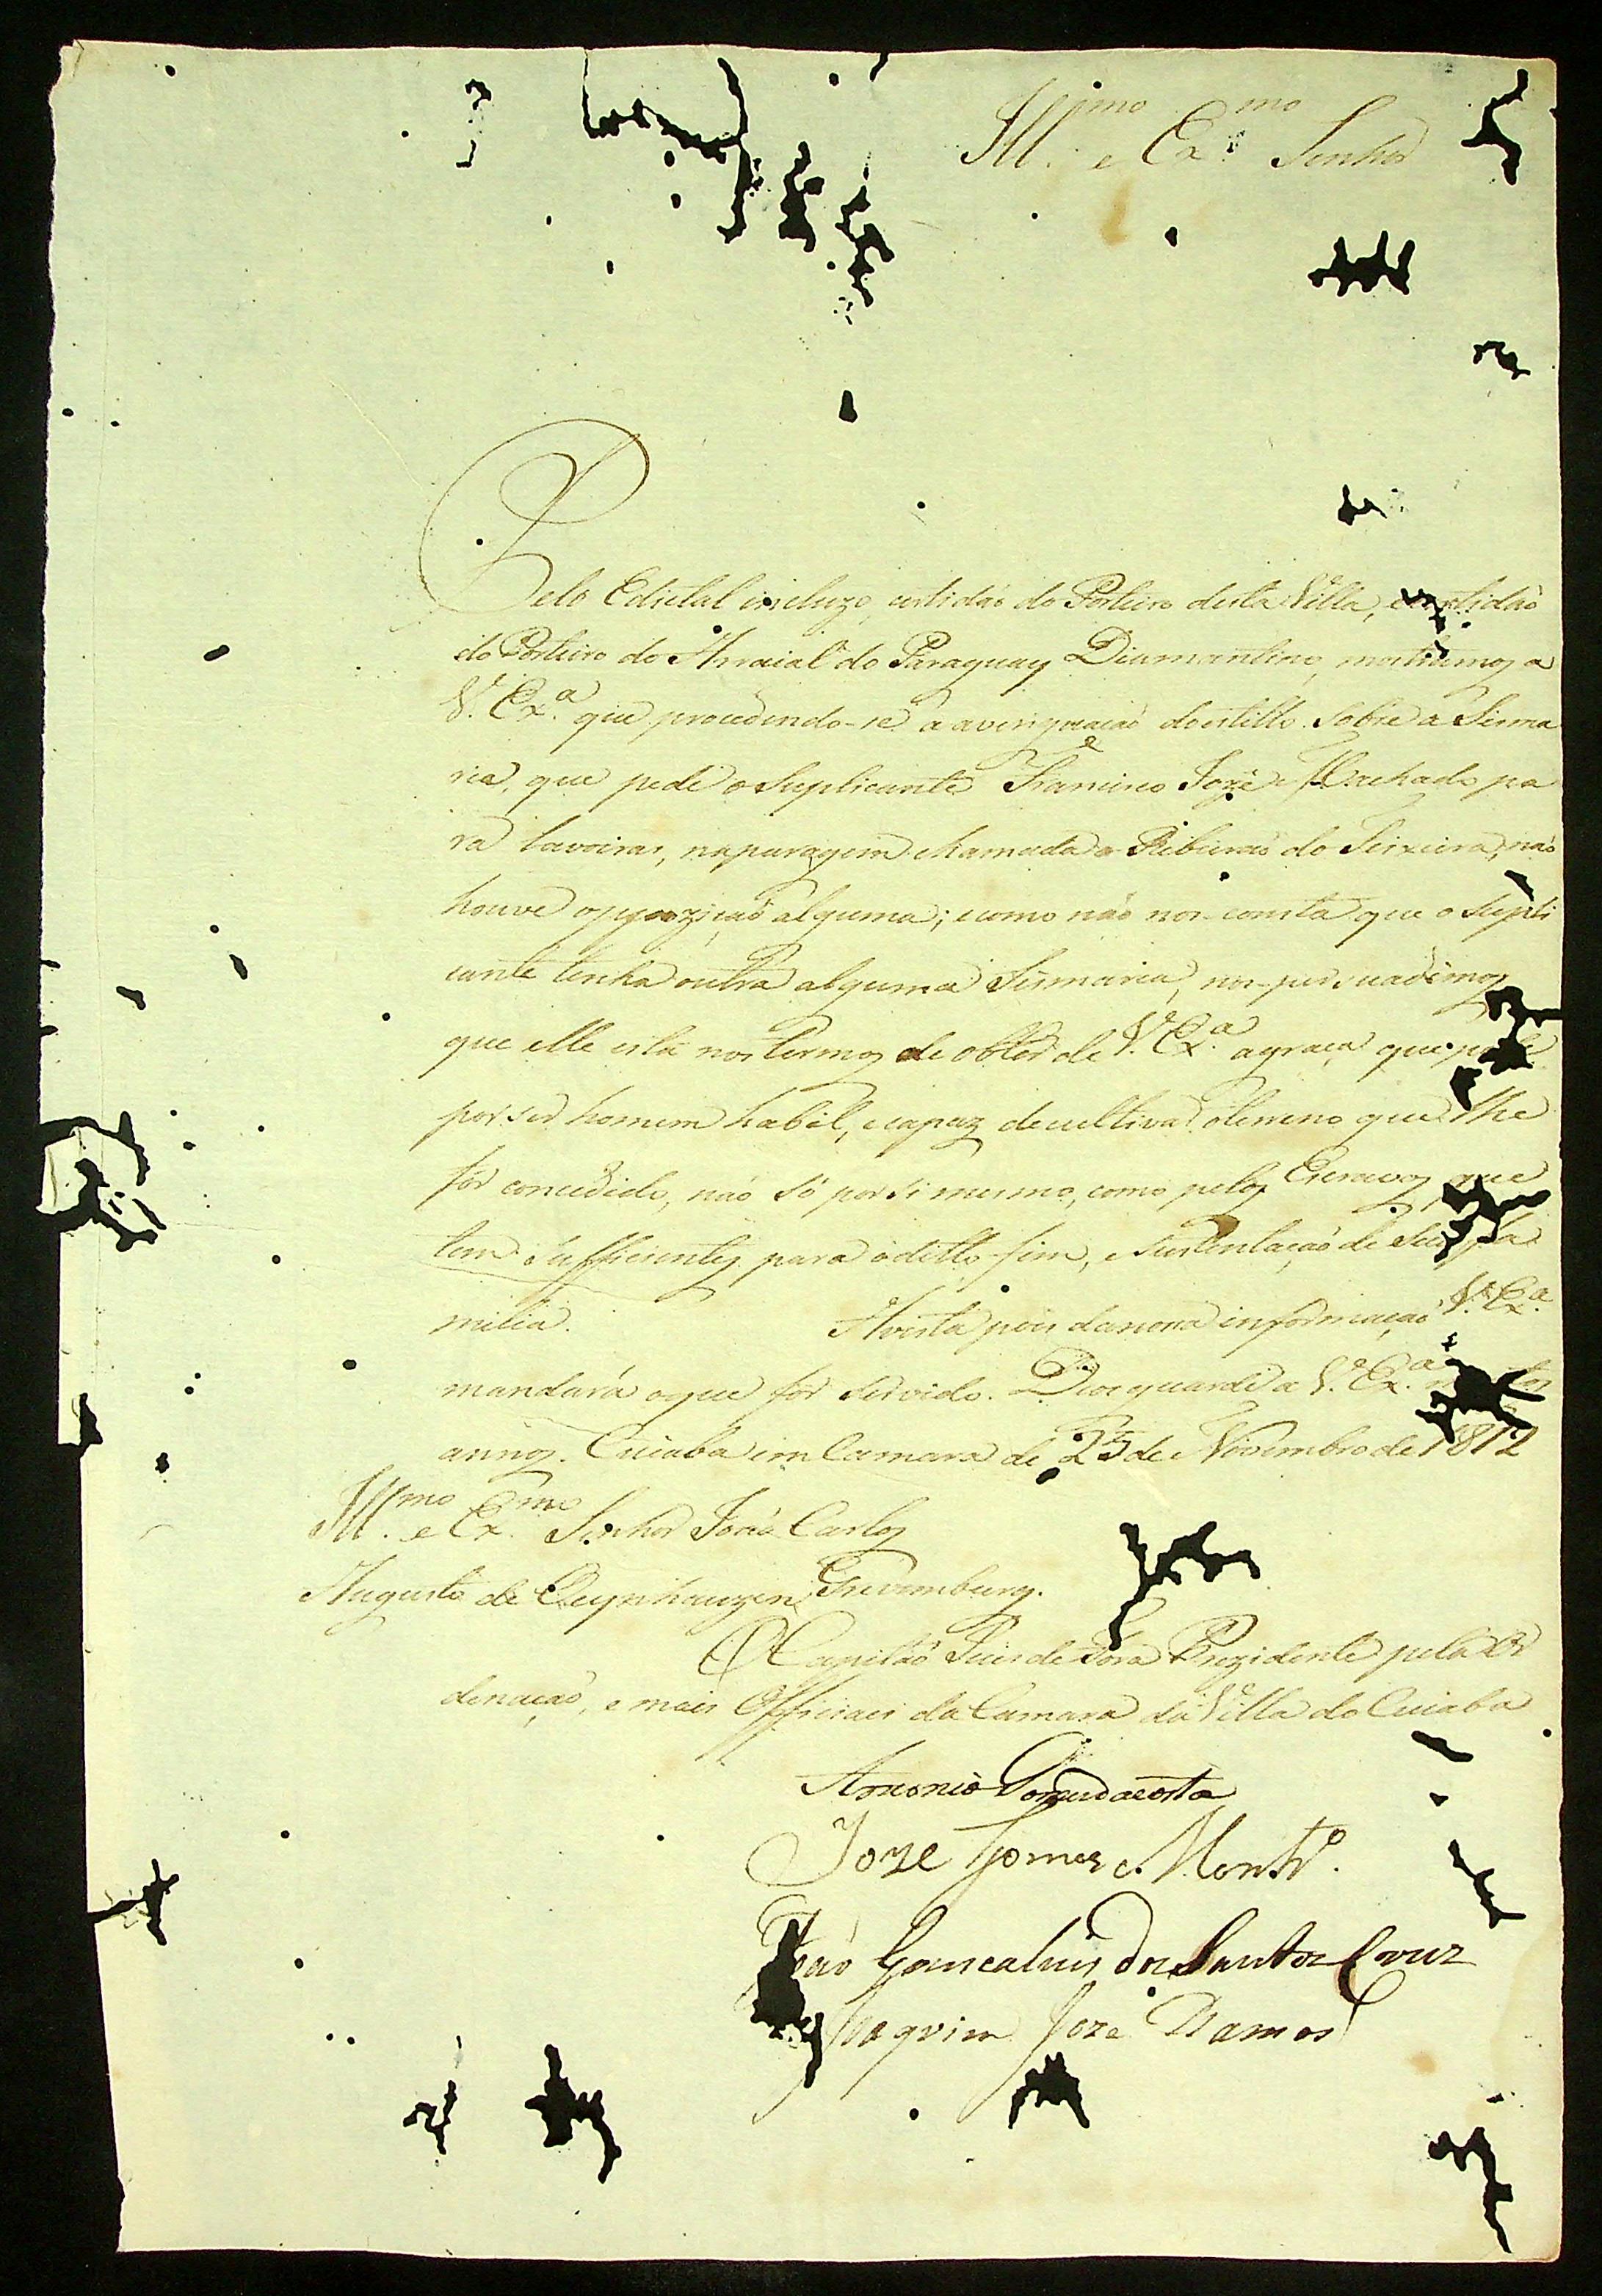 Ill.mo e Ex.mo Senhor
Pelo Edietal incluzo, certidaõ do Porteiro desta Villa, e certidaõ
do Porteiro do Arraial do Paraguay Diamantino, mostramos a
V. Ex.a que procedendo-se a averiguaçaõ do estillo sobre a Sisma
ria, que pede o Suplicante Francisco Jozé Machado pa
ra lavoiras, na paragem chamada o Ribeiraõ do Teixeira, naõ
houve oppoziçaõ alguma; e como naõ nos consta que o Supli
cante tenha outra alguma Sismaria, nos persuadimos
que elle está nos termos de obter de V. Ex.a a graça que pede
por ser homem habil, e capaz de cultivar o terreno que lhe
for concedido, naõ só por si mesmo, como pelos Escravos que
tem sufficientes para o ditto fim, e sustentaçaõ de sua fa
milia. A vista pois da nossa informaçaõ V. Ex.a
mandará o que for servido. Deos guarde a V. Ex.a tos
annos. Cuiabá em Camara de 25 de Novembro de 1812
Ill.mo e Ex.mo Senhor Joaõ Carlos
Augusto de Oeynhauzen Grevemburg.
O Capitaõ Juis de Fora Prezidente pela Or
denaçaõ, e mais Officiais da Camara da Villa do Cuiabá
Antonio dacosta
Joze Gomes Montr.o
Joaõ Goncalves dos Santos Cruz
Joaquim Joze Ramos